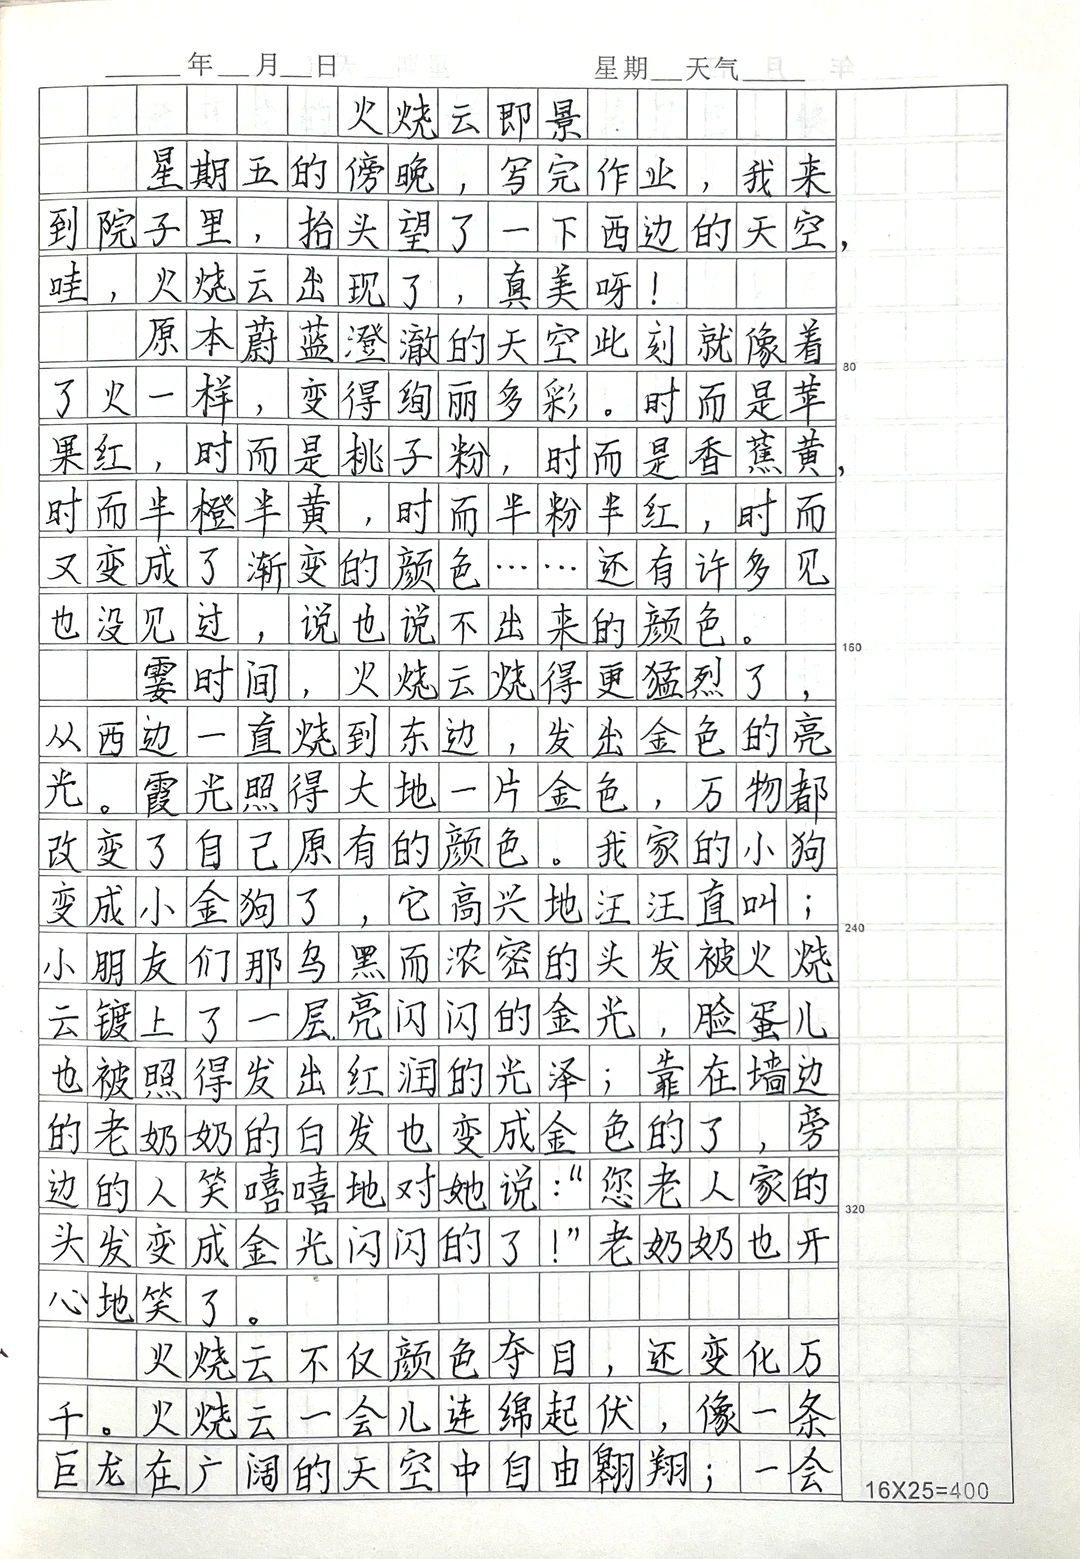 年 月 日 星期 天气
火烧云即景
星期五的傍晚，写完作业，我来
到院子里，抬头望了一下西边的天空，
哇，火烧云出现了，真美呀！
原本蔚蓝澄澈的天空此刻就像着
了火一样，变得绚丽多彩。时而是苹
果红，时而是桃子粉，时而是香蕉黄，
时而半橙半黄，时而半粉半红，时而
又变成了渐变的颜色……还有许多见
也没见过，说也说不出来的颜色。
霎时间，火烧云烧得更猛烈了，
从西边一直烧到东边，发出金色的亮
光。霞光照得大地一片金色，万物都
改变了自己原有的颜色。我家的小狗
变成小金狗了，它高兴地汪汪直叫；
小朋友们那乌黑而浓密的头发被火烧
云镀上了一层亮闪闪的金光，脸蛋儿
也被照得发出红润的光泽；靠在墙边
的老奶奶的白发也变成金色的了，旁
边的人笑嘻嘻地对她说：“您老人家的
头发变成金光闪闪的了！”老奶奶也开
心地笑了。
火烧云不仅颜色夺目，还变化万
千。火烧云一会儿连绵起伏，像一条
巨龙在广阔的天空中自由翱翔；一会
80
160
240
320
16X25=400